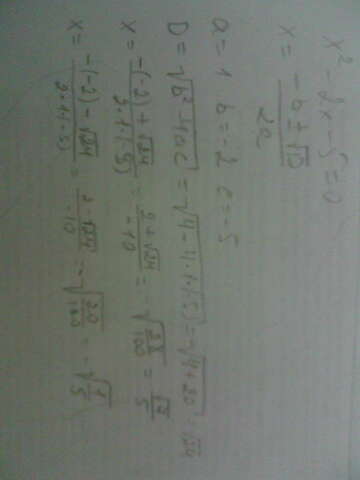 x² - 2x - 5 = 0
x = (-b ± √D) / 2a
a = 1 b = -2 c = -5
D = √(b² - 4ac) = √(4 - 4·1·(-5)) = √(4+20) = √24
x = (-(-2) + √24) / (2·1·(-5)) = (2 + √24) / -10 = -√(28/100) = √7 / 5
x = (-(-2) - √24) / (2·1·(-5)) = (2 - √24) / -10 = -√(20/100) = -√(1/5)